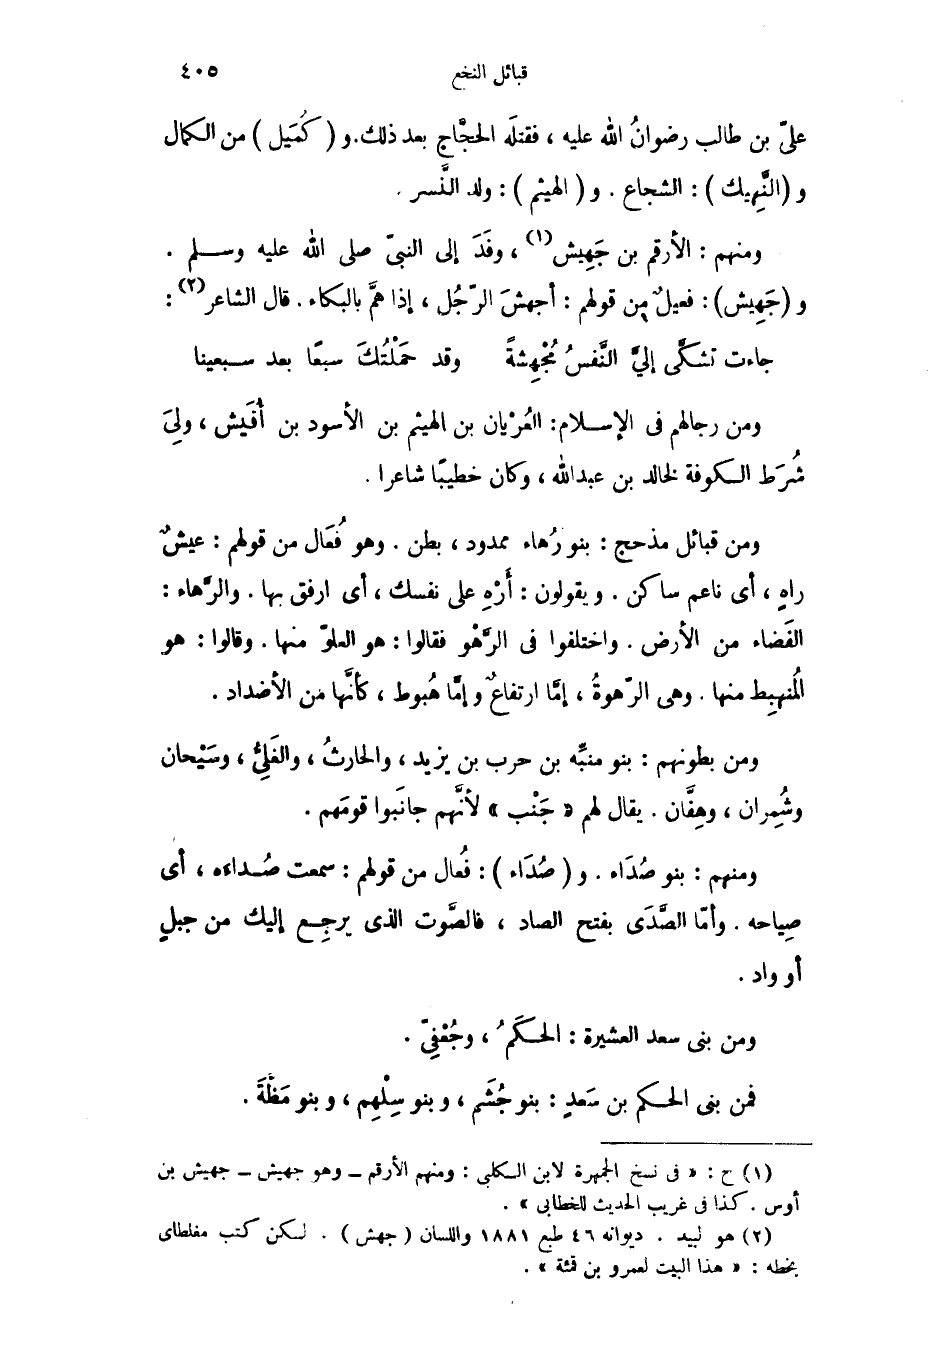 قبائل النخع ٤٠٥
علىّ بن طالب رضوانُ الله عليه ، فقتلَه الحجَّاج بعد ذلك. و ( كُمَيل ) من الكمال
و (النَّهِيك ) : الشجاع . و ( الهيثم ) : ولد النَّسر .
ومنهم : الأرقم بن جَهِيش(١) ، وفَدَ إلى النبىّ صلى الله عليه وسلم .
و (جَهِيش) : فعيلٌ مِن قولهم : أجهشَ الرّجُل ، إذا همَّ بالبكاء . قال الشاعر(٢) :
جاءت تشكَّى إلىَّ النَّفسُ مُجْهِشةً وقد حَمْلْتُكَ سبعًا بعد سبعينا
ومن رجالهم فى الإسلام: العُرْيان بن الهيثم بن الأسود بن أُقَيش ، ولِىَ
شُرَط الكوفة لخالد بن عبدالله ، وكان خطيبًا شاعرا .
ومن قبائل مذحج : بنو رُهاء ممدود ، بطن . وهو فُعَال من قولهم : عيشٌ
راهٍ ، أى ناعم ساكن . ويقولون : أَرْهِ على نفسك ، أى ارفق بها . والرَّهاء :
الفَضاء من الأرض . واختلفوا فى الرَّهْو فقالوا : هو العلوّ منها . وقالوا : هو
المُنهبِط منها . وهى الرّهوةُ ، إمَّا ارتفاعٌ وإمَّا هُبوط ، كأنَّها من الأضداد .
ومن بطونهم : بنو منبِّه بن حرب بن يزيد ، والحارثُ ، والغَلِىُّ ، وسَيْحان
وشُمِران ، وهِفَّان . يقال لهم « جَنْب » لأنَّهم جانَبوا قومَهم .
ومنهم : بنو صُدَاء . و ( صُدَاء ) : فُعال من قولهم : سمعت صُداءه ، أى
صِياحه . وأمّا الصَّدَى بفتح الصاد ، فالصَّوت الذى يرجِع إليك من جبلٍ
أو واد .
ومن بنى سعد العشيرة : الحكَمُ ، وجُعْفِىّ .
فمن بنى الحكم بن سَعدٍ : بنو جُشَم ، وبنو سِلْهِم ، وبنو مَظَّةَ .
(١) ح : « فى نسخ الجمهرة لابن الكلبى : ومنهم الأرقم ــ وهو جهيش ــ جهيش بن
أوس . كذا فى غريب الحديث للخطابى » .
(٢) هو لبيد . ديوانه ٤٦ طبع ١٨٨١ واللسان ( جهش ) . لكن كتب مغلطاى
بخطه : « هذا البيت لعمرو بن قمئة » .